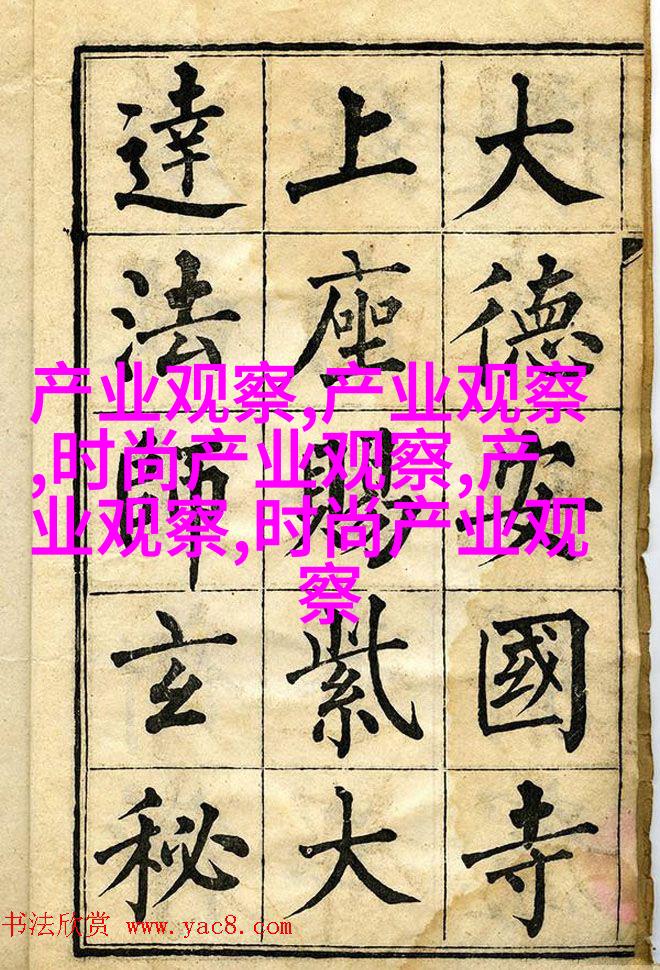 大德安國寺
上座賜紫大
達法師玄秘
产业观察,产业观察
,时尚产业观察,产
业观察,时尚产业观
察
书法欣赏 www.yac8.com